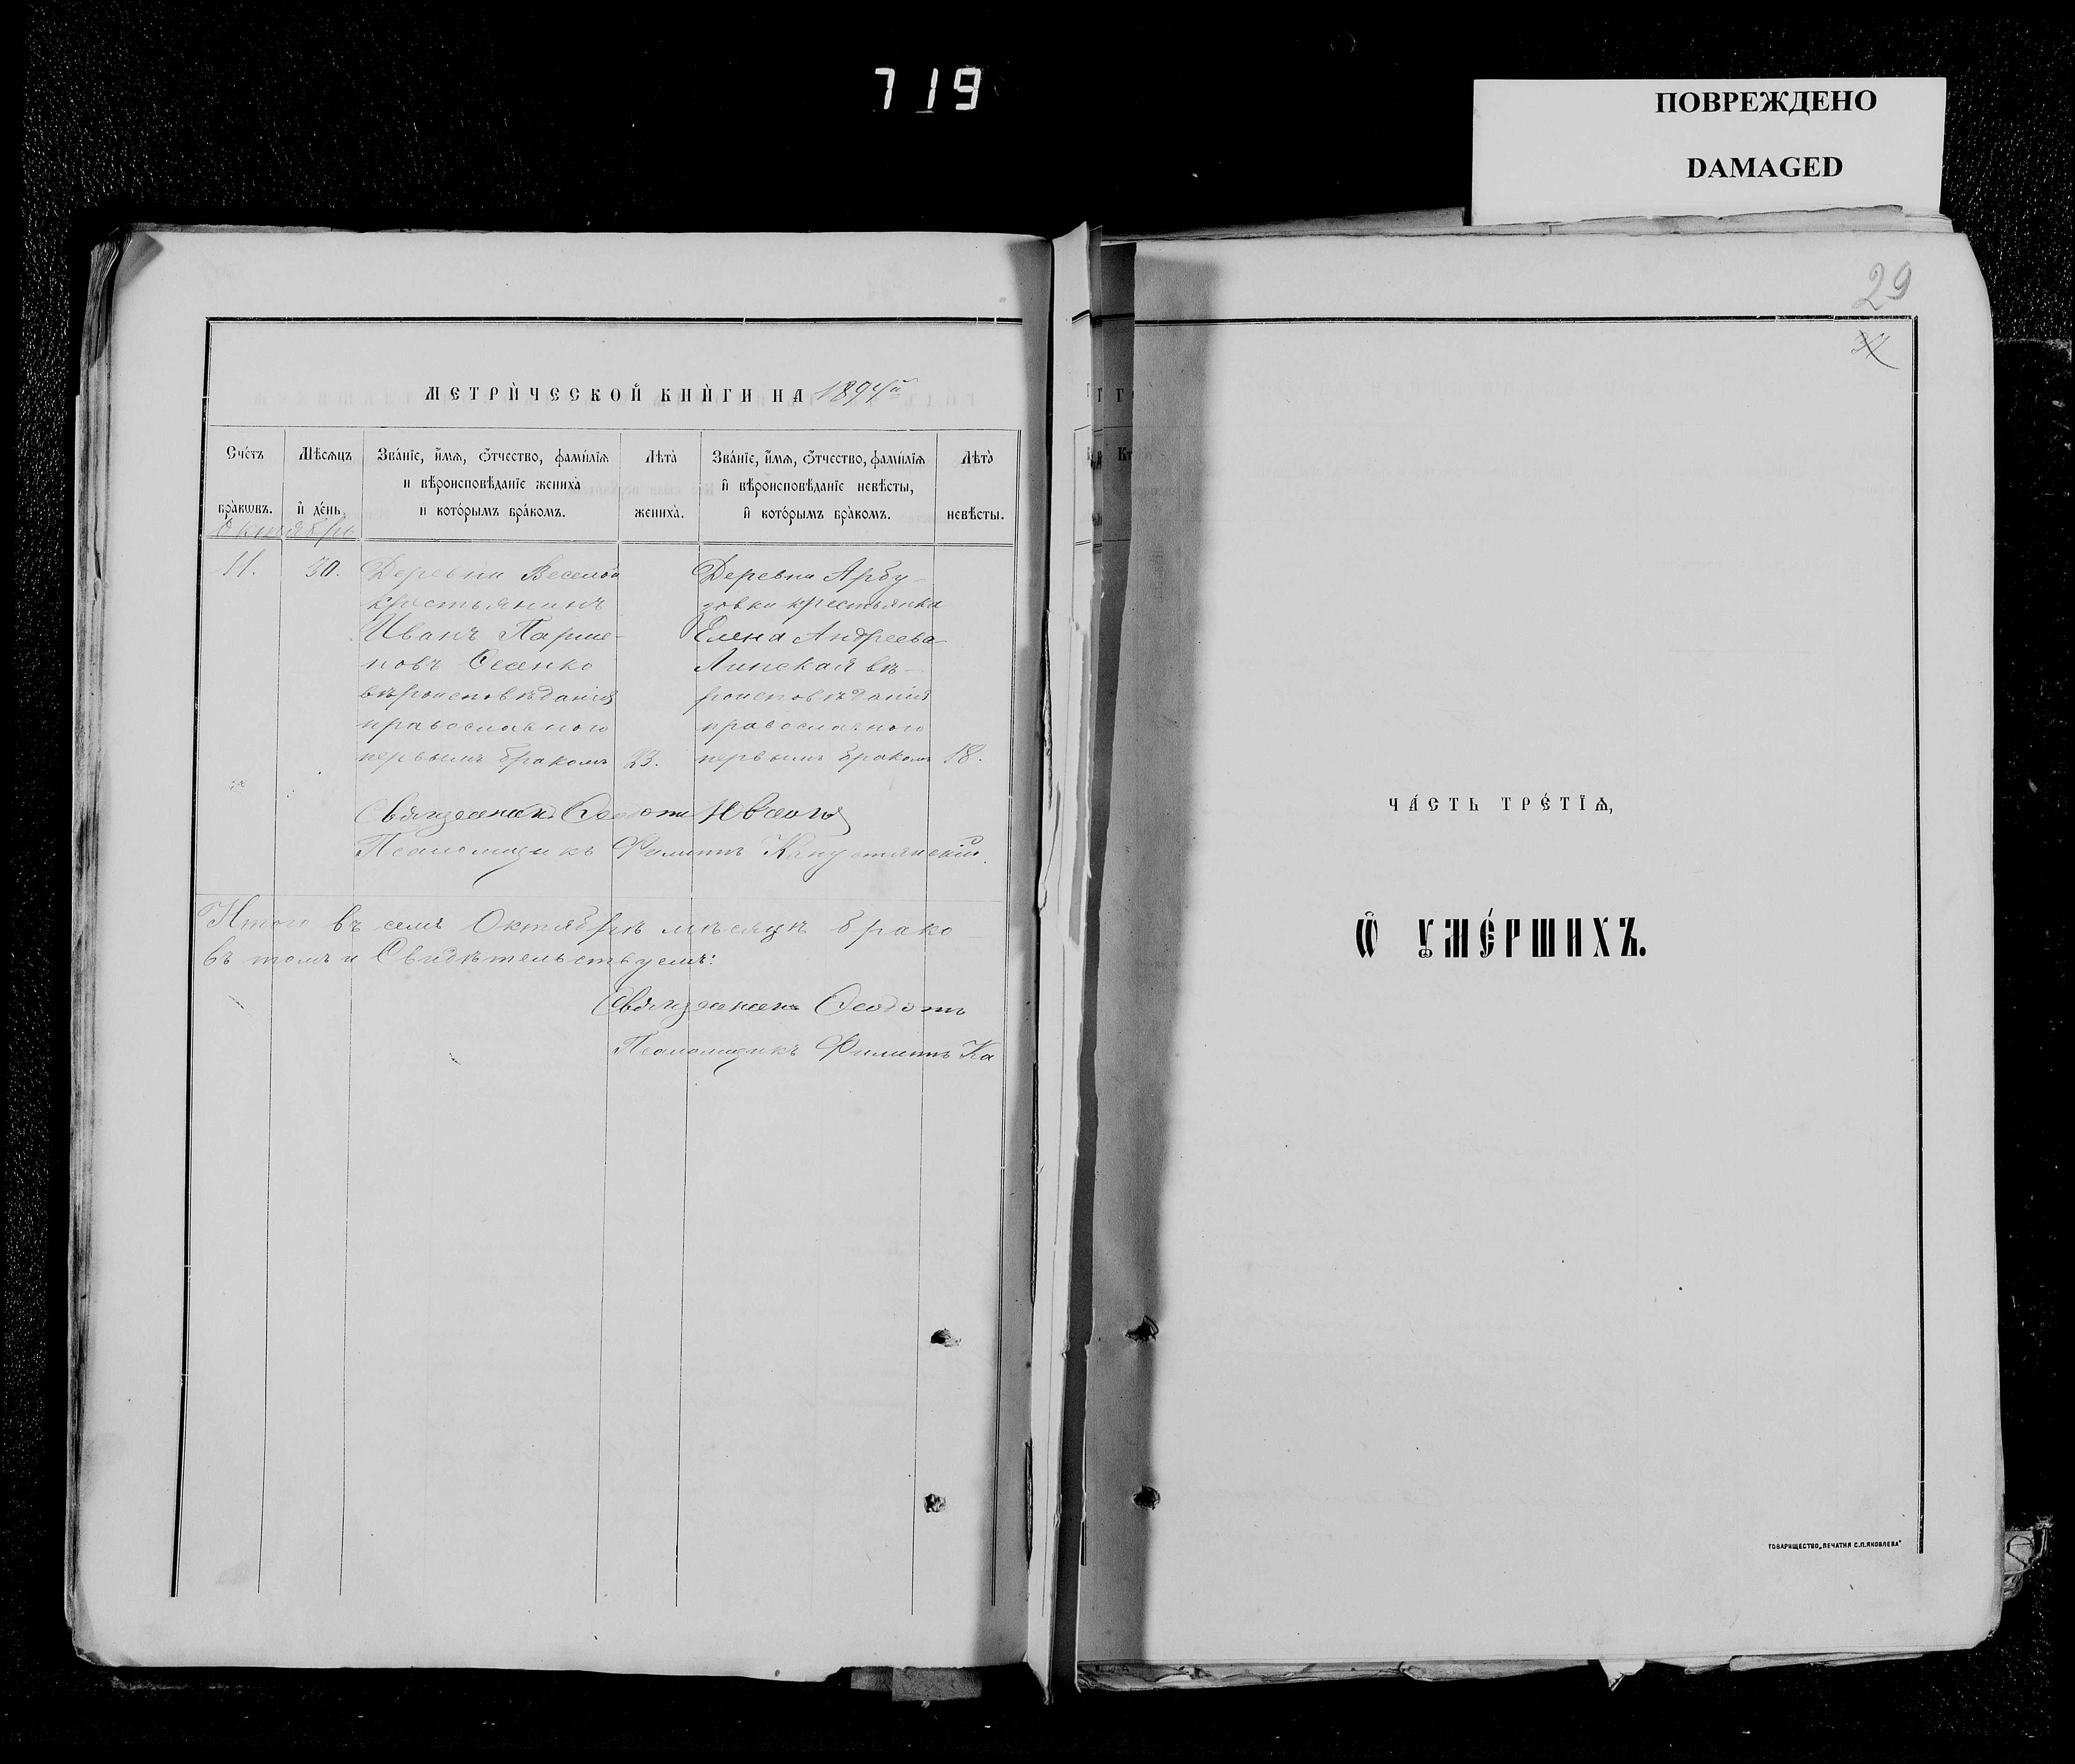 719
ПОВРЕЖДЕНО
DAMAGED
МЕТРИ́ЧЕСКОЙ КНИ́ГИ НА 1894й
Сче́тъ бра́кѡвъ.
Мѣсѧцъ и҆ де́нь.
Зва́нїе, и҆́мѧ, ѻ҆́тчество, фами́лїѧ и вѣроисповѣ́данїе жениха̀ и кото́рымъ бра́комъ.
Лѣта̀ жениха̀.
Зва́нїе, и҆́мѧ, ѻ҆́тчество, фами́лїѧ и҆ вѣроисповѣ́данїе невѣ́сты, и҆ кото́рымъ бра́комъ.
Лѣта̀ невѣ́сты.
Октябрь
11.
30.
Деревни Веселой
крестьянинъ
Иванъ Парѳе-
новъ
вѣроисповѣданія
православнаго
первымъ бракомъ
23.
Деревни Арбу-
зовки крестьянка
Елена Андреева
Липская вѣ-
роисповѣданія
православнаго
первымъ бракомъ
18.
Священникъ Ѳеодотъ
Псаломщикъ Филиппъ Капустянскій.
Итого въ семъ Октябрѣ мѣсяцѣ брако
въ томъ и Свидѣтельствуемъ:
Священникъ Ѳеодотъ
Псаломщикъ Филиппъ Ка
29
31
ЧА́СТЬ ТРЕ́ТЇѦ,
Ѽ ᲂУМЕ́РШИХЪ.
ТОВАРИЩЕСТВО „ПЕЧАТНЯ С.П.ЯКОВЛЕВА"